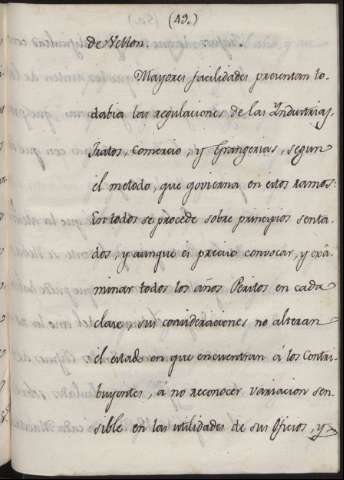 (49.)
de Vellon.
Mayores facilidades presentan to-
dabia las regulaciones de las Industrias,
Tratos, Comercio, y Grangerias, segun
el metodo, que govierna en estos ramos:
En todos se procede sobre principios senta-
dos, y aunque es preciso convocar, y exâ-
minar todos los años Peritos en cada
clase, sus consideraciones no alteran
el estado en que encuentran á los Contri-
buyentes, á no reconocer variacion sen-
sible en las utilidades de sus Oficios, y